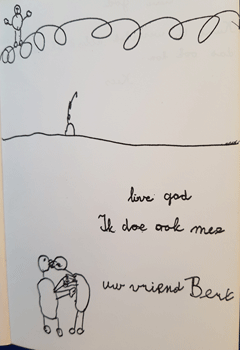 live god
Ik doe ook mee
uw vriend Bert